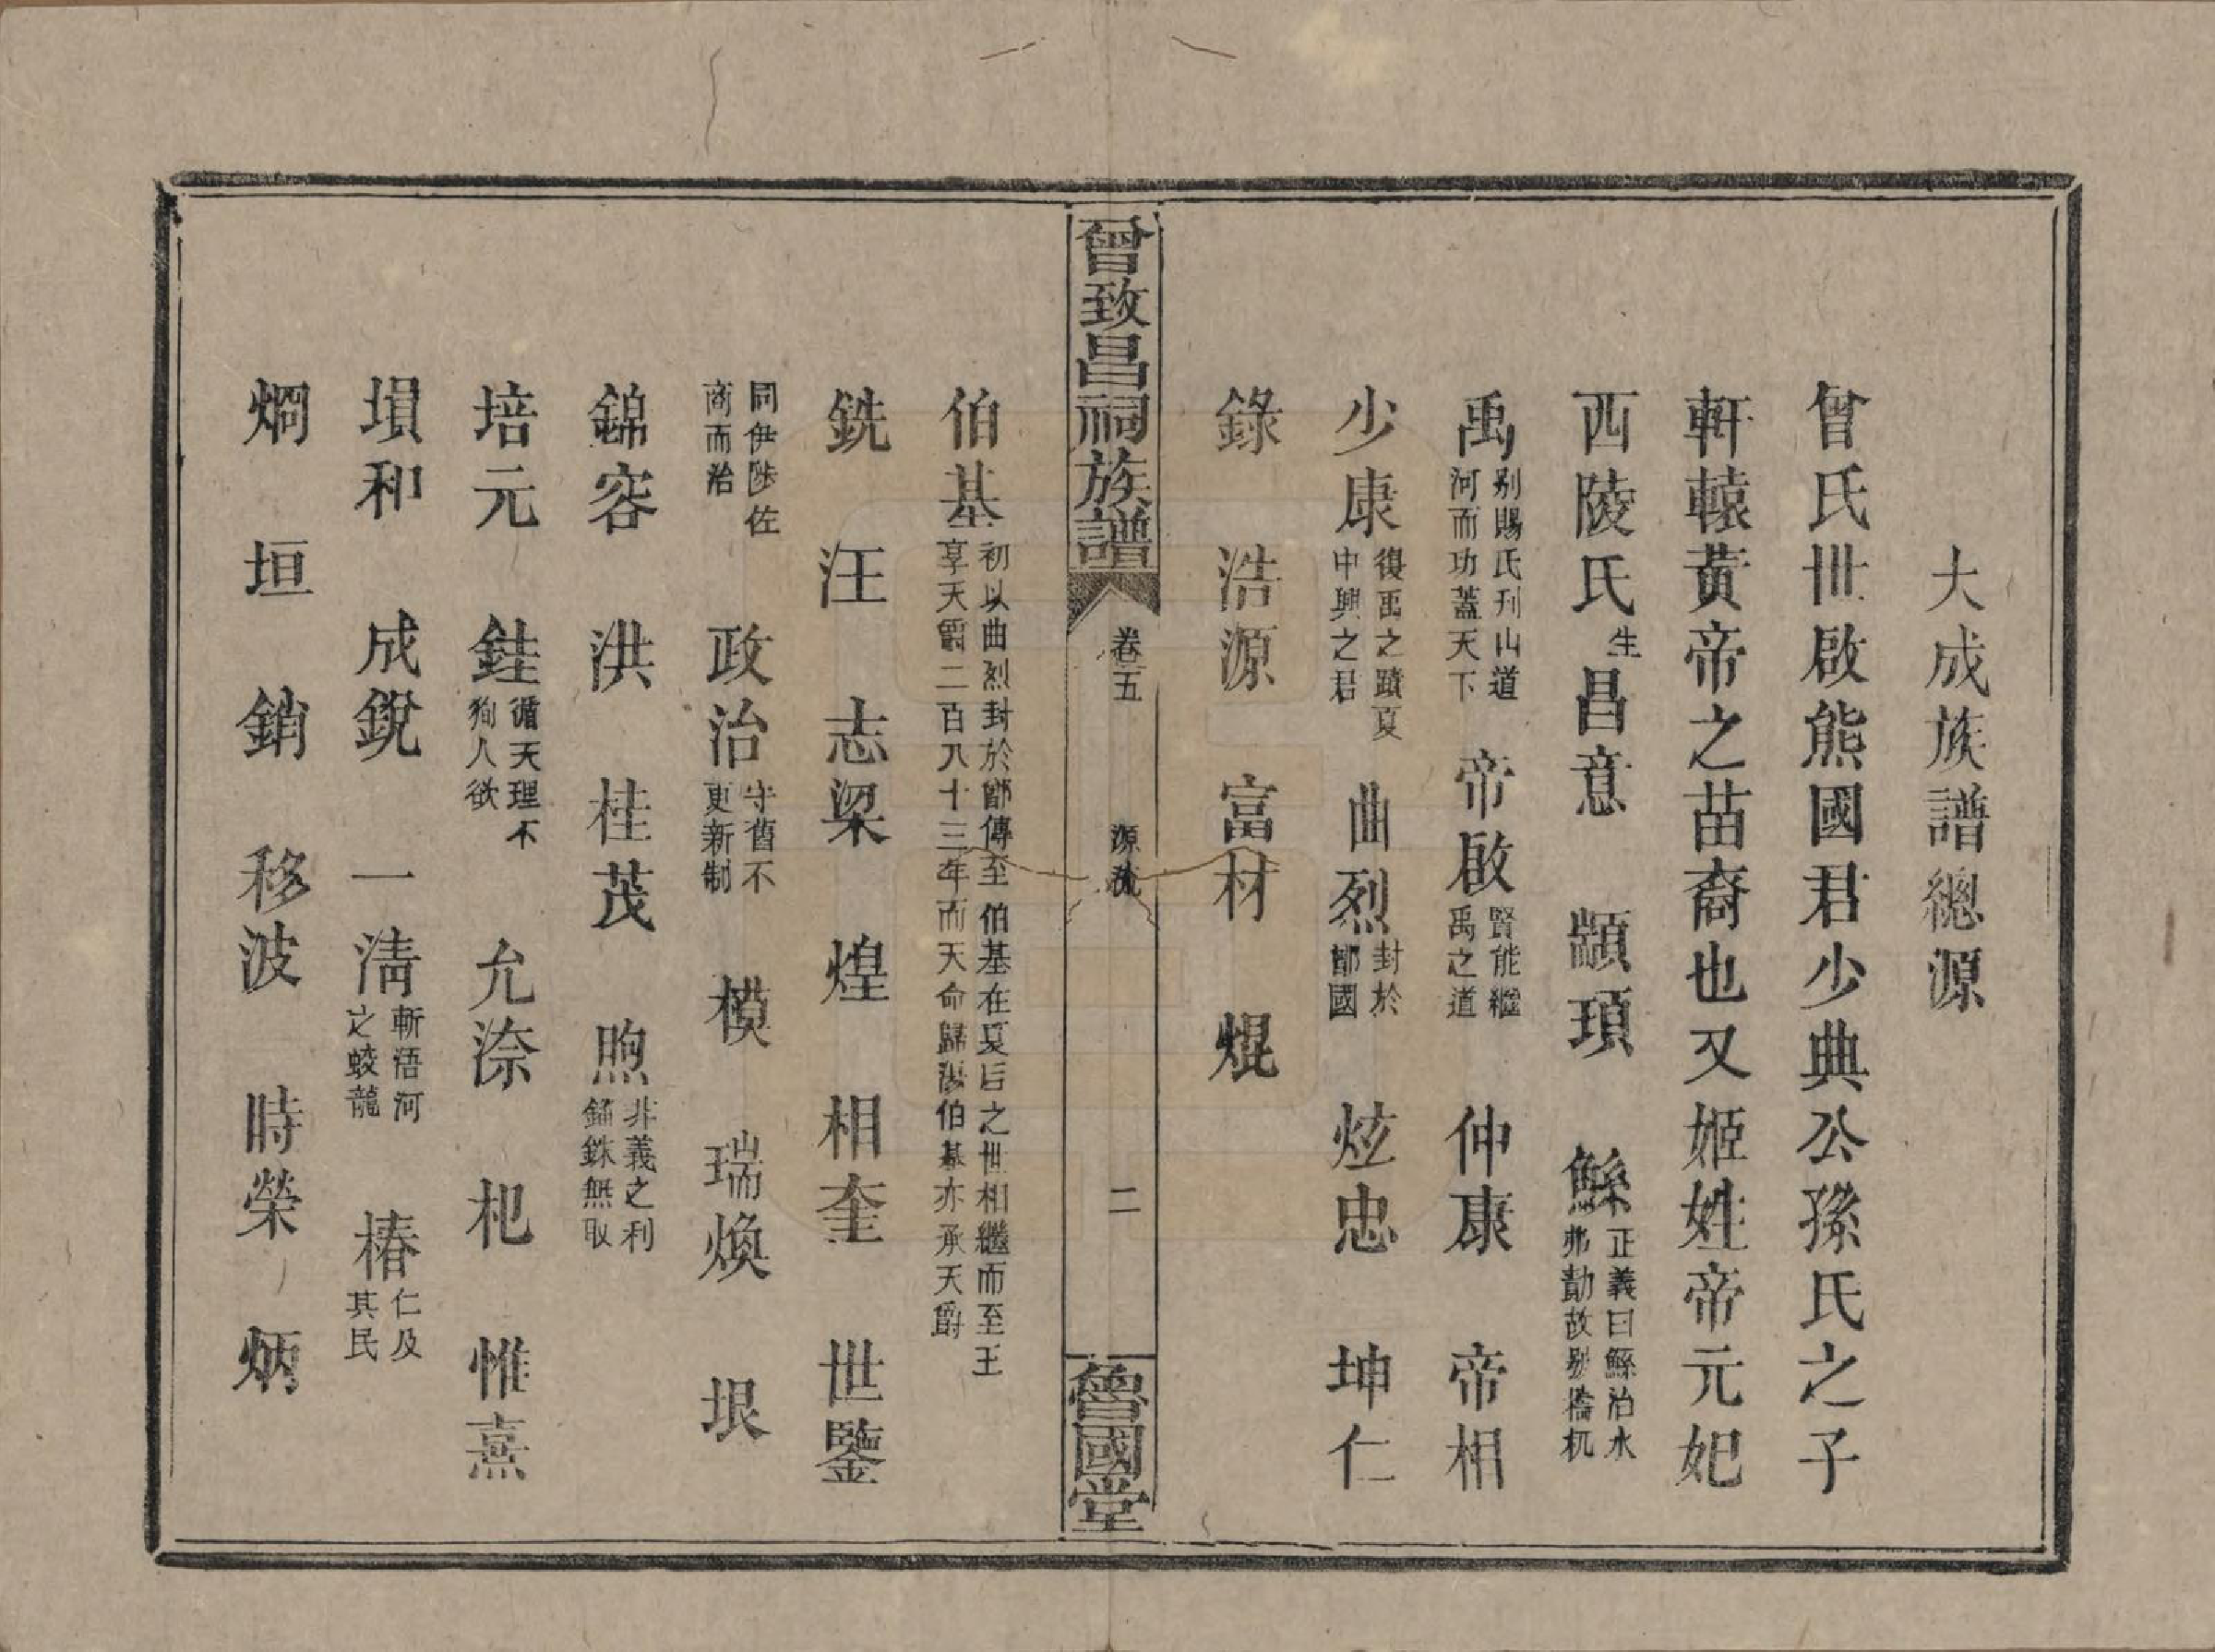 大成族譜總源
曾氏世啟熊國君少典公孫氏之子
軒轅黃帝之苗裔也又姬姓帝元妃
西陵氏生昌意　顓頊　鯀正義曰鯀治水弗勣故别檮杌
禹别賜氏刋山道河而功蓋天下　帝啟賢能繼禹之道　仲康　帝相
少康復禹之蹟夏中興之君　曲烈封於鄫國　炫忠　坤仁
錄　浩源　富材　焜
曾致昌祠族譜　卷五　源流　二　魯國堂
伯基初以曲烈封於鄫傳至伯基在夏后之世相繼而至王享天爵二百八十三年而天命歸湯伯基亦承天爵
銑　汪　志梁　煌　相奎　世鑒
同伊陟佐商而治　政治守舊不更新制　模　瑞煥　垠
錦容　洪　桂茂　煦非義之利錙銖無取
培元　銈循天理不狥人欲　允渿　杝　惟熹
塤和　成銳　一清斬浯河之蛟龍　椿仁及其民
烱　垣　銷　移波　時榮　炳